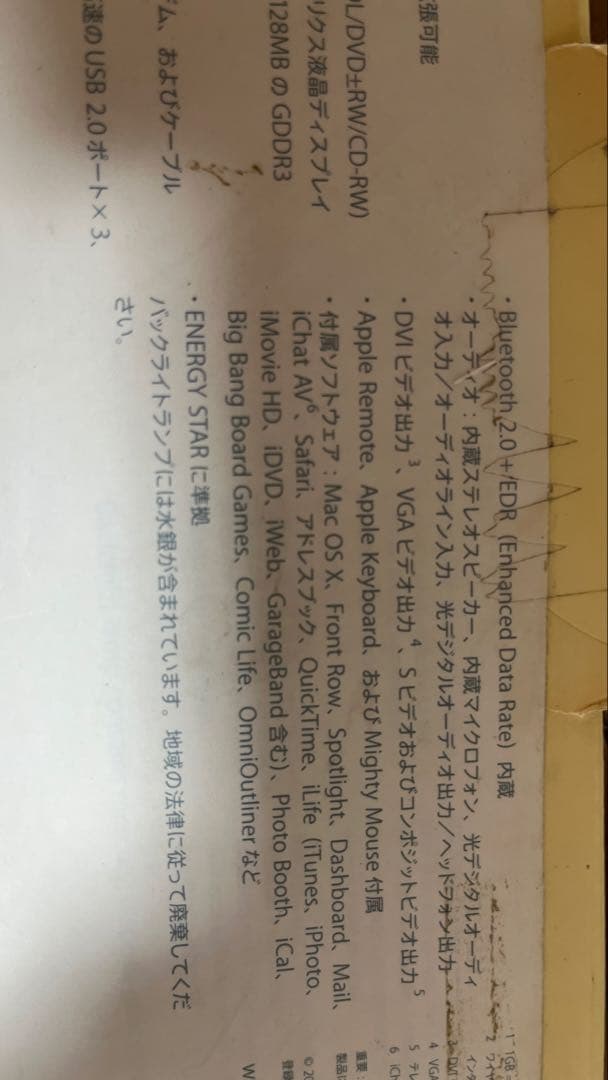 張可能
L/DVD±RW/CD-RW)
リクス液晶ディスプレイ
128MB の GDDR3
ム、およびケーブル
速の USB 2.0 ポート × 3、
・Bluetooth 2.0 +EDR (Enhanced Data Rate) 内蔵
・オーディオ：内蔵ステレオスピーカー、内蔵マイクロフォン、光デジタルオーディ
オ入力／オーディオライン入力、光デジタルオーディオ出力／ヘッドフォン出力
・DVI ビデオ出力3、VGA ビデオ出力4、S ビデオおよびコンポジットビデオ出力5
・Apple Remote、Apple Keyboard、および Mighty Mouse 付属
・付属ソフトウェア：Mac OS X、Front Row、Spotlight、Dashboard、Mail、
iChat AV6、Safari、アドレスブック、QuickTime、iLife (iTunes、iPhoto、
iMovie HD、iDVD、iWeb、GarageBand 含む)、Photo Booth、iCal、
Big Bang Board Games、Comic Life、OmniOutliner など
・ENERGY STAR に準拠
バックライトランプには水銀が含まれています。地域の法律に従って廃棄してくだ
さい。
1 1GB
2 ワイヤ
インタ
3 DVI
4 VGA
5 テレ
6 iCh
重要：
製品に
© 20
登録
W